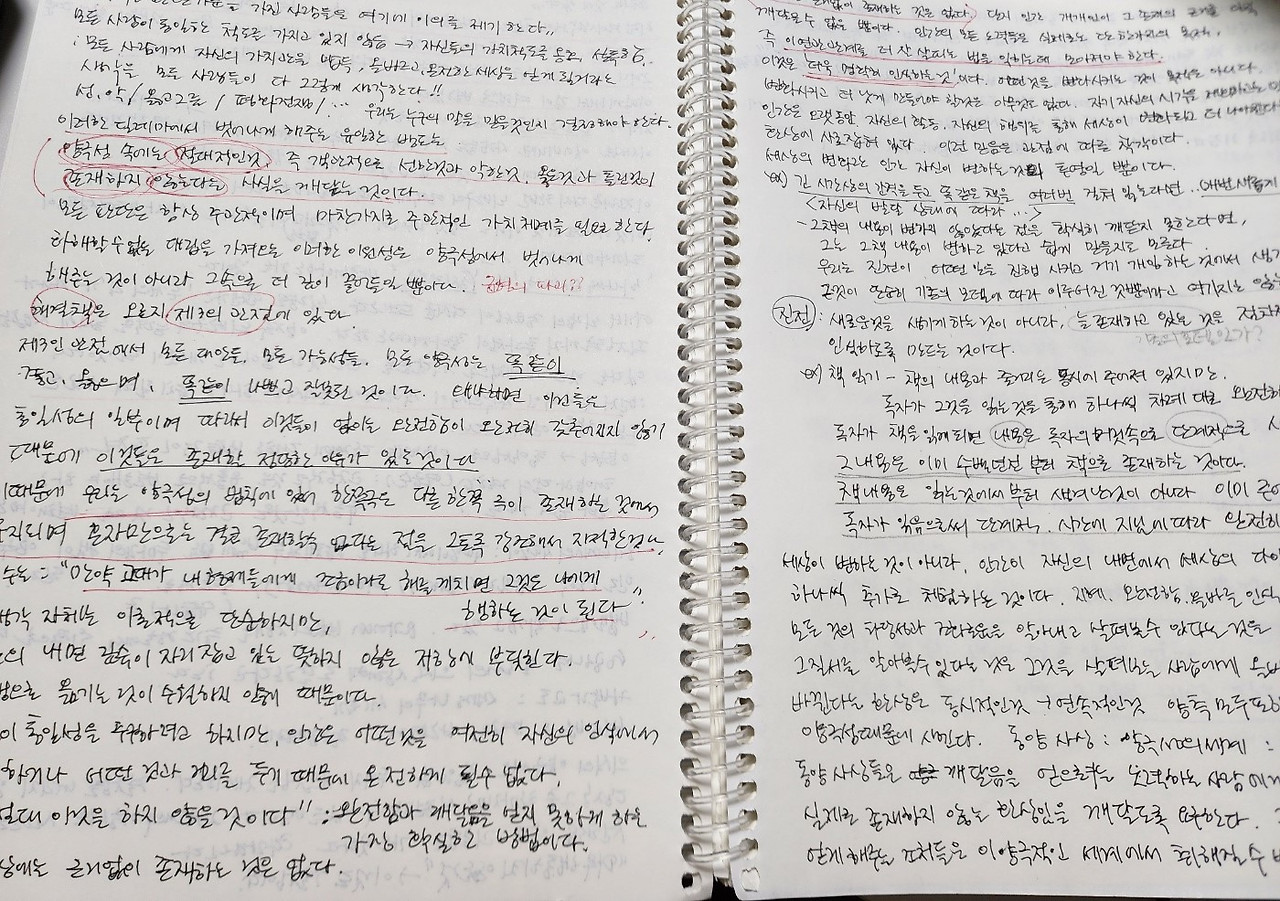 가진 사람들은 여기에 이의를 제기 한다.,
모든 사람이 동일한 척도를 가지고 있지 않음 → 자신들의 가치척도를 옹호, 설득
: 모든 사람에게 자신의 가치관을 납득, 올바르고 온전한 세상을 얻게 될거라는
생각을 모든 사람들이 다 그렇게 생각한다 !!
선, 악 / 옳고그름 / / ... 우리는 누구의 말을 믿을것인지 결정해야 한다.
이러한 딜레마에서 벗어나게 해주는 유일한 방도는
양극성 속에는 절대적인것 즉 객관적으로 선한것과 악한것, 옳은것과 틀린것이
존재하지 않는다는 사실을 깨닫는 것이다
모든 판단은 항상 주관적이며 마찬가지로 주관적인 가치체계를 필요로 한다.
화해할수 없는 대립을 가져오는 이러한 이원성은 양극성에서 벗어나게
해주는 것이 아니라 그속으로 더 깊이 끌어들일 뿐이다
해결책은 오로지 제3의 관점에 있다.
제3의 관점에서 모든 대안들, 모든 가능성들, 모든 양극성은 똑같이
좋고, 옳으며 똑같이 나쁘고 잘못된 것이다. 왜냐하면 이것들은
통일성의 일부이며 따라서 이것들이 없이는 완전함이 온전히 갖추어지지 않기
때문에 이것들은 존재할 정당한 이유가 있는것이다
이때문에 우리는 양극성의 법칙에 있어 한쪽극은 다른 한쪽 극이 존재하는 것에서
유지되며 혼자만으로는 결코 존재할수 없다는 점을 그토록 강조해서 지적한것
예수는 : "만약 그대가 내 형제들에게 해를 끼치면 그것은 나에게
행하는 것이 된다"
생각 자체는 이론적으로 단순하지만,
의 내면 깊숙이 자리 잡고 있는 뜻하지 않은 저항에 부딪힌다.
으로 옮기는 것이 수월하지 않기 때문이다.
이 통일성을 추구하려고 하지만, 인간은 어떤것을 여전히 자신의 인식에서
하거나 어떤 것과 거리를 두기 때문에 온전하게 될수 없다.
절대 이것을 하지 않을것이다" : 완전함과 깨달음을 얻지 못하게 하는
가장 확실한 방법이다.
상에는 근거없이 존재하는 것은 없다.
존재하는 것은 없다. 단지 인간 개개인이 그 존재의 근거를
깨닫을수 없을 뿐이다. 인간의 모든 노력들은 실제로는 단 한가지의 목적,
즉 더 잘 살피는 법을 익히는데 모아져야 한다.
이것은 더욱 명확히 인식하는것 이다. 어떤것을 변화시키는 것이 목적은 아니다.
변화시키고 더 낫게 만들어야 할것은 아무것도 없다. 자기 자신의 시각을
인간은 오랫동안 자신의 활동, 자신의 행위를 통해 세상이 변화되고 더 나아진다는
환상에 사로잡혀 있다. 이런 믿음은 관점에 따른 착각이다.
세상의 변화는 인간 자신이 변하는것의 투영일 뿐이다.
예) 긴 시간상의 간격을 두고 똑같은 책을 여러번 걸쳐 읽는다면... 매번 새롭게
<자신의 발달 상태에 따라 ...>
- 그책의 내용이 변하지 않았다는 점을 확실히 깨닫지 못한다면,
그는 그책 내용이 변하고 있다고 쉽게 믿을지도 모른다.
우리는 진전이 어떤 일을 진행 시키고 거기 개입하는 것에서 생기
그것이 단순히 기존의 모델에 따라 이루어진 것뿐이라고 여기지는 않는
진전 : 새로운것을 생기게 하는것이 아니라, 늘 존재하고 있는 것을 점차
인식하도록 만드는 것이다.
예) 책 읽기 - 책의 내용과 줄거리는 동시에 주어져 있지만,
독자가 그것을 읽는것을 통해 하나씩 차례 대로 완전히
독자가 책을 읽게되면 내용은 독자의 머릿속으로 단계적으로
그 내용은 이미 수백년전 부터 책으로 존재하는 것이다.
책내용은 읽는것에서부터 생겨난것이 아니다 이미 주어
독자가 읽음으로써 단계적, 시간에 지남에 따라 완전히
세상이 변하는 것이 아니라, 인간이 자신의 내면에서 세상의 다
하나씩 추가로 체험하는 것이다. 지혜, 완전함, 올바른 인식
모든 것의 타당성과 균형을 알아내고 살펴볼수 있다는 것을
그질서를 알아볼수 있다는 것은 그것을 살펴보는 사람에게
바뀐다는 환상은 동시적인것 → 연속적인것 양쪽 모두
양극성때문에 생긴다. 동양 사상 : 양극성의 세계 :
동양 사상들은 깨달음을 얻으려는 노력하는 사람에게
실제로 존재하지 않는 환상임을 깨닫도록 요구한다.
얻게 해주는 이 양극적인 세계에서